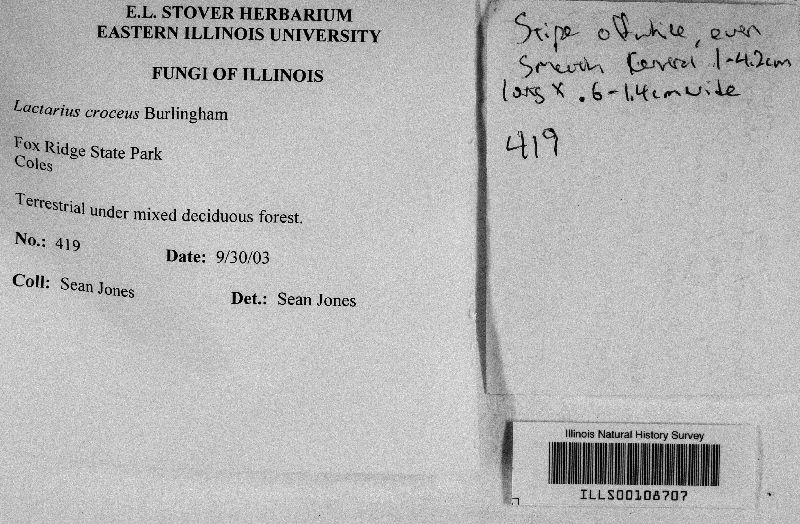 E.L. STOVER HERBARIUM
EASTERN ILLINOIS UNIVERSITY
FUNGI OF ILLINOIS
Lactarius croceus Burlingham
Fox Ridge State Park
Coles
Terrestrial under mixed deciduous forest.
No.: 419 Date: 9/30/03
Coll: Sean Jones Det.: Sean Jones
Stipe offwhite, even
Smooth Central 1-4.2cm
long x .6-1.4cm wide
419
Illinois Natural History Survey
ILLS00108707